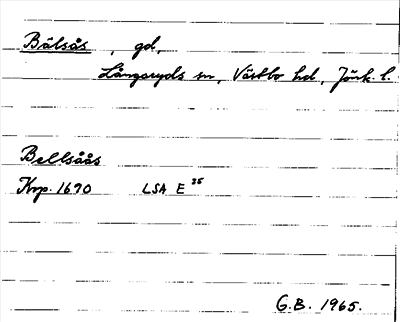 Bälsås, gd,
Långaryds sn, Västbo hd, Jönk. l.
Bellsåås
Krp. 1690 LSA E 25
G.B. 1965.